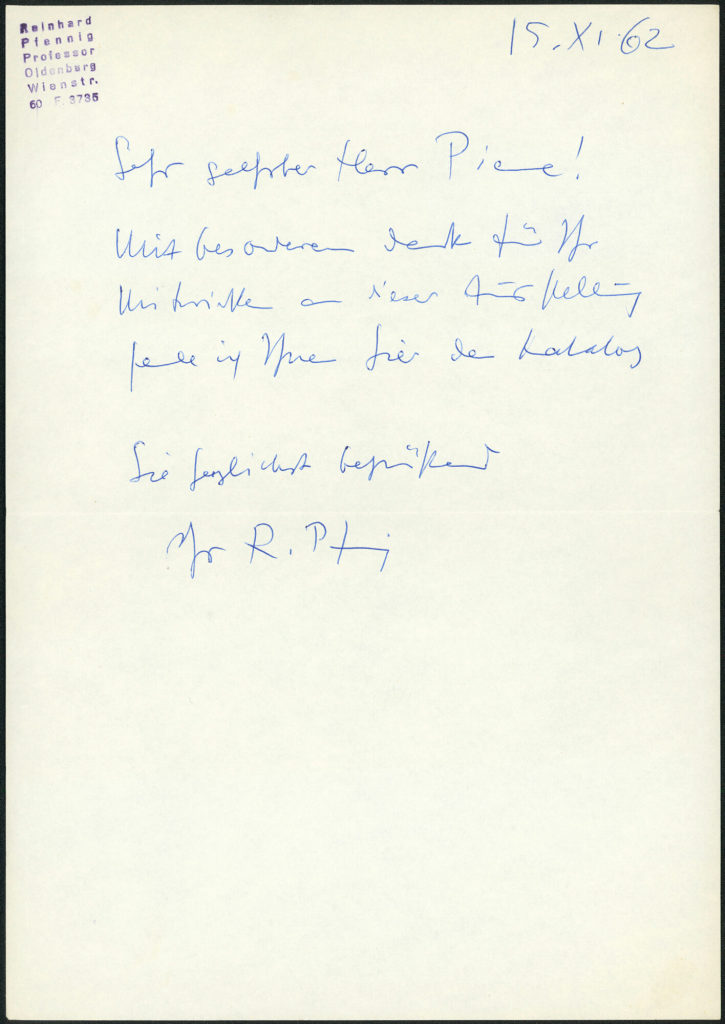 Reinhard
Pfennig
Professor
Oldenburg
Wienstr.
60 F. 3735
15. XI. 62
Sehr geehrter Herr Piene!
Mit besonderem Dank für Ihr
Mitwirken an dieser Ausstellung
sende ich Ihnen hier den Katalog
Sie herzlichst begrüßend
Ihr R. Pfennig